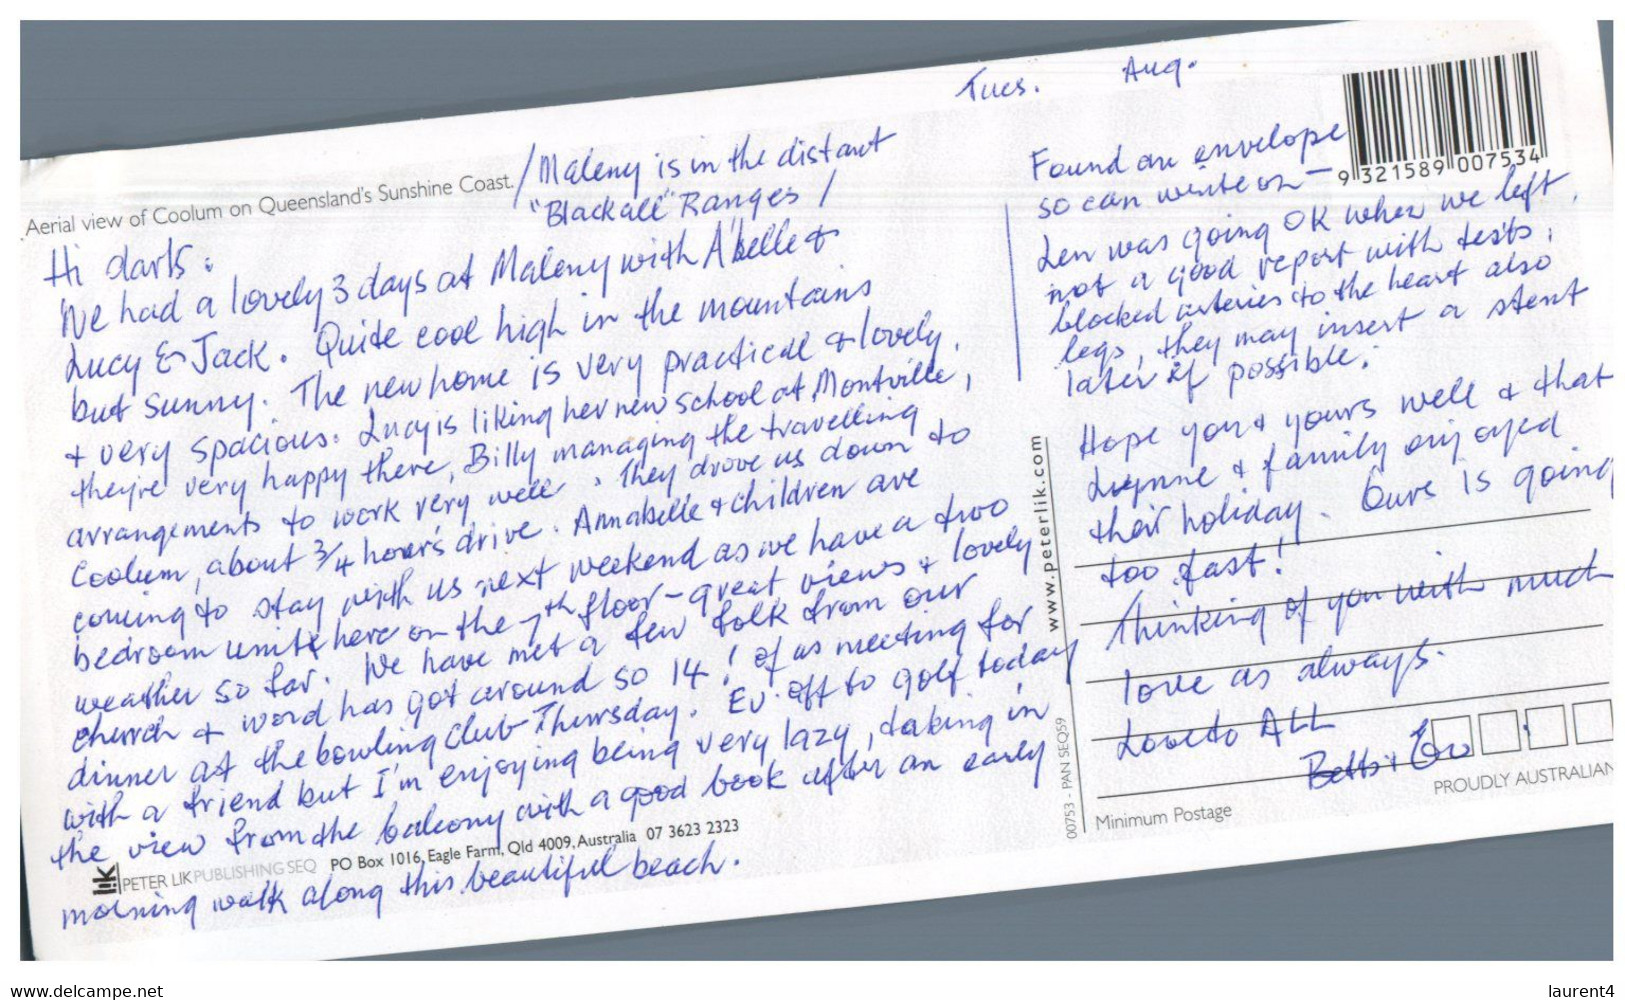 Tues. Aug.
Aerial view of Coolum on Queensland's Sunshine Coast.
/Maleny is in the distant
"Blackall" Ranges /
Hi darls.
We had a lovely 3 days at Maleny with A'belle &
Lucy & Jack. Quite cool high in the mountains
but sunny. The new home is very practical & lovely,
& very spacious. Lucy is liking her new school at Montville,
they're very happy there, Billy managing the travelling
arrangements to work very well. They drove us down to
Coolum, about 3/4 hour's drive. Annabelle & children are
coming to stay with us next weekend as we have a two
bedroom unit here on the 7th floor - great views & lovely
weather so far. We have met a few folk from our
church & word has got around so 14! of us meeting for
dinner at the bowling Club Thursday. Ev. off to golf today
with a friend but I'm enjoying being very lazy, taking in
the view from the balcony with a good book after an early
morning walk along this beautiful beach.
lik PETER LIK PUBLISHING SEQ PO Box 1016, Eagle Farm, Qld 4009, Australia 07 3623 2323
Found an envelope
so can write on -
Len was going OK when we left,
not a good report with tests,
blocked arteries to the heart also
legs, they may insert a stent
later if possible.
Hope you & yours well & that
Lynne & family enjoyed
their holiday. Ours is going
too fast!
Thinking of you with much
love as always.
Love to ALL
Betts & Ev
9 321589 007534
www.peterlik.com
00753 - PAN SEQ59
Minimum Postage
PROUDLY AUSTRALIAN
www.delcampe.net
laurent4